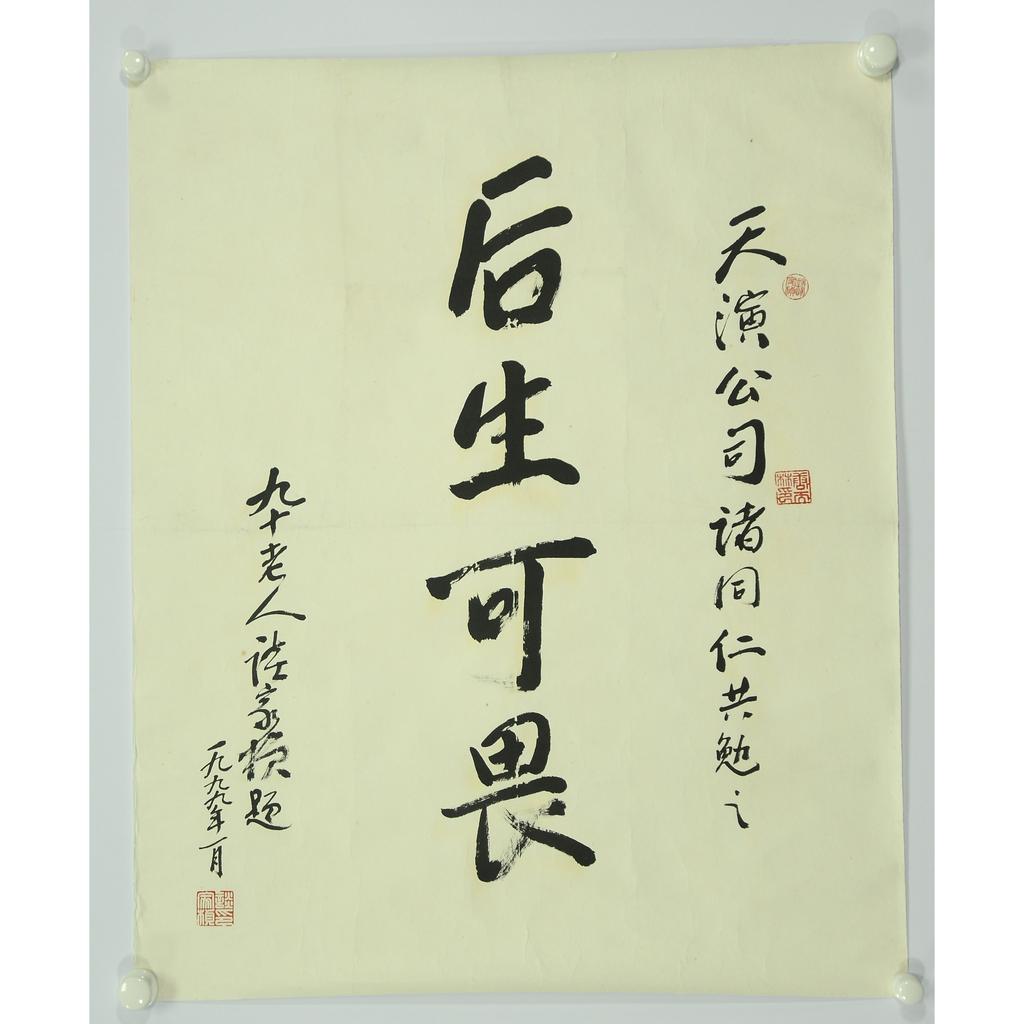 天演公司诸同仁共勉之
后生可畏
九十老人谈家桢题
一九九九年一月